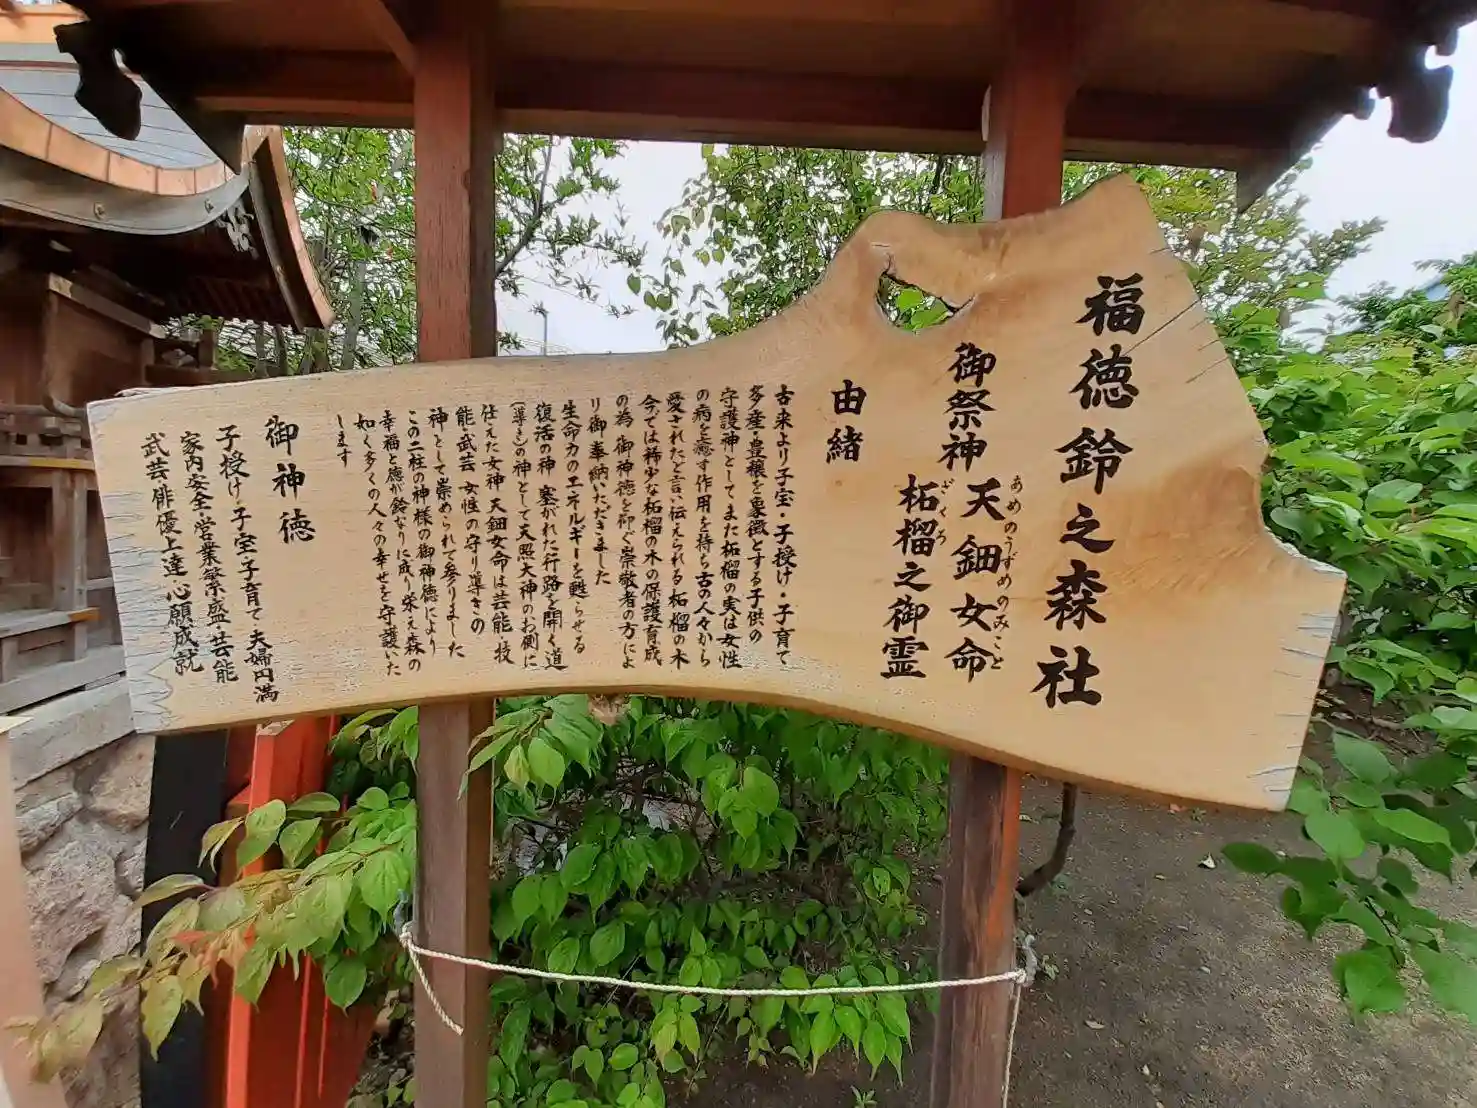 福徳鈴之森社
御祭神 天鈿女命
あめのうずめのみこと
柘榴之御霊
ざくろ
由緒
古来より子宝・子授け・子育て
多産・豊穣を象徴とする子供の
守護神としてまた柘榴の実は女性
の病を癒す作用を持ち古の人々から
愛されたと言い伝えられる柘榴の木
今では稀少な柘榴の木の保護育成
の為 御神徳を仰ぐ崇敬者の方によ
り御奉納いただきました
生命力のエネルギーを甦らせる
復活の神 塞がれた行路を開く道
(導き)の神として天照大神のお側に
仕えた女神 天鈿女命は芸能・技
能・武芸 女性の守り導きの
神として崇められて参りました
この二柱の神様の御神徳により
幸福と徳が鈴なりに成り栄え森の
如く多くの人々の幸せを守護いた
します
御神徳
子授け・子宝・子育て 夫婦円満
家内安全・営業繁盛・芸能
武芸俳優上達・心願成就